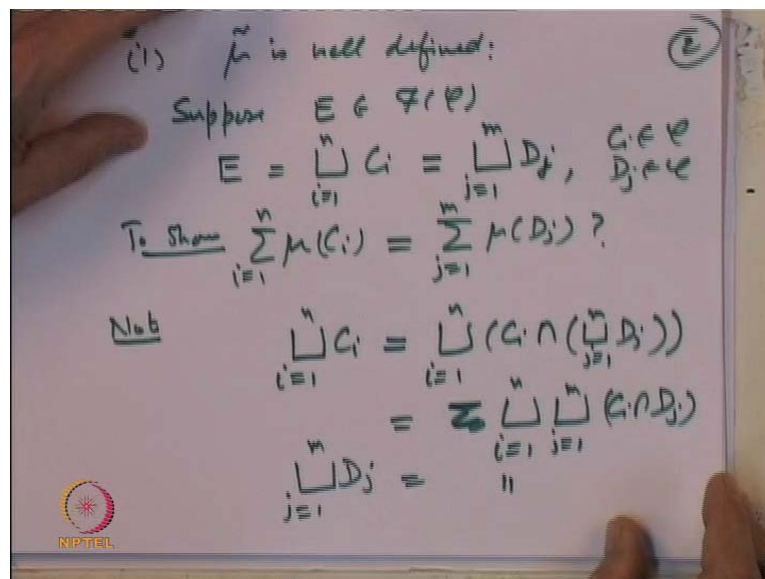 (1) μ̃ is well defined: (2)
Suppose E ∈ F(φ)
E = ⨆_{i=1}^{n} Ci = ⨆_{j=1}^{m} Dj, Ci ∈ φ
Dj ∈ φ
To Show ∑_{i=1}^{n} μ(Ci) = ∑_{j=1}^{m} μ(Dj) ?
Not ⨆_{i=1}^{n} Ci = ⨆_{i=1}^{n} (Ci ∩ (⨆_{j=1}^{m} Dj))
= ⨆_{i=1}^{n} ⨆_{j=1}^{m} (Ci ∩ Dj)
⨆_{j=1}^{m} Dj = "
NPTEL